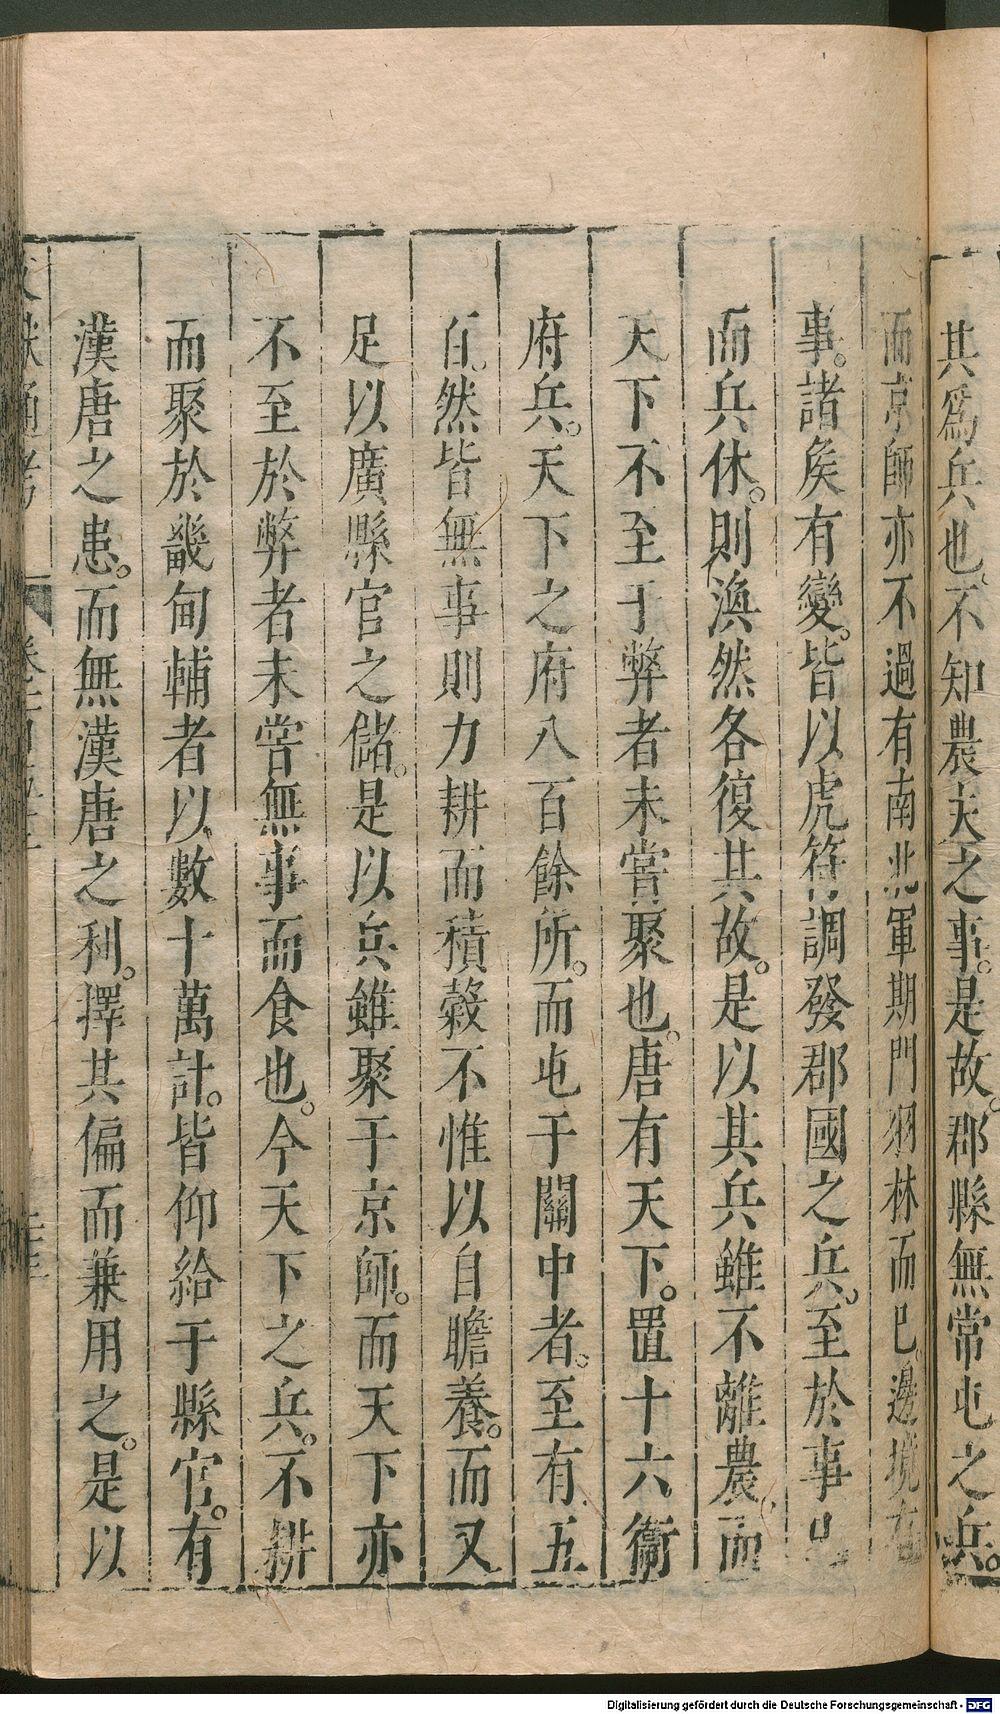 其爲兵也。不知農夫之事。是故。郡縣無常屯之兵。
而京師亦不過有南北軍期門羽林而已。邊境有
事。諸矦有變。皆以虎符調發郡國之兵。至於事已
而兵休。則渙然各復其故。是以其兵雖不離農。而
天下不至于弊者未嘗聚也。唐有天下。置十六衞
府兵。天下之府八百餘所。而屯于關中者。至有五
百。然皆無事則力耕而積穀不惟以自贍養。而又
足以廣縣官之儲。是以兵雖聚于京師。而天下亦
不至於弊者未嘗無事而食也。今天下之兵。不耕
而聚於畿甸輔者以數十萬計。皆仰給于縣官。有
漢唐之患。而無漢唐之利。擇其偏而兼用之。是以
文獻通考
Digitalisierung gefördert durch die Deutsche Forschungsgemeinschaft - DFG